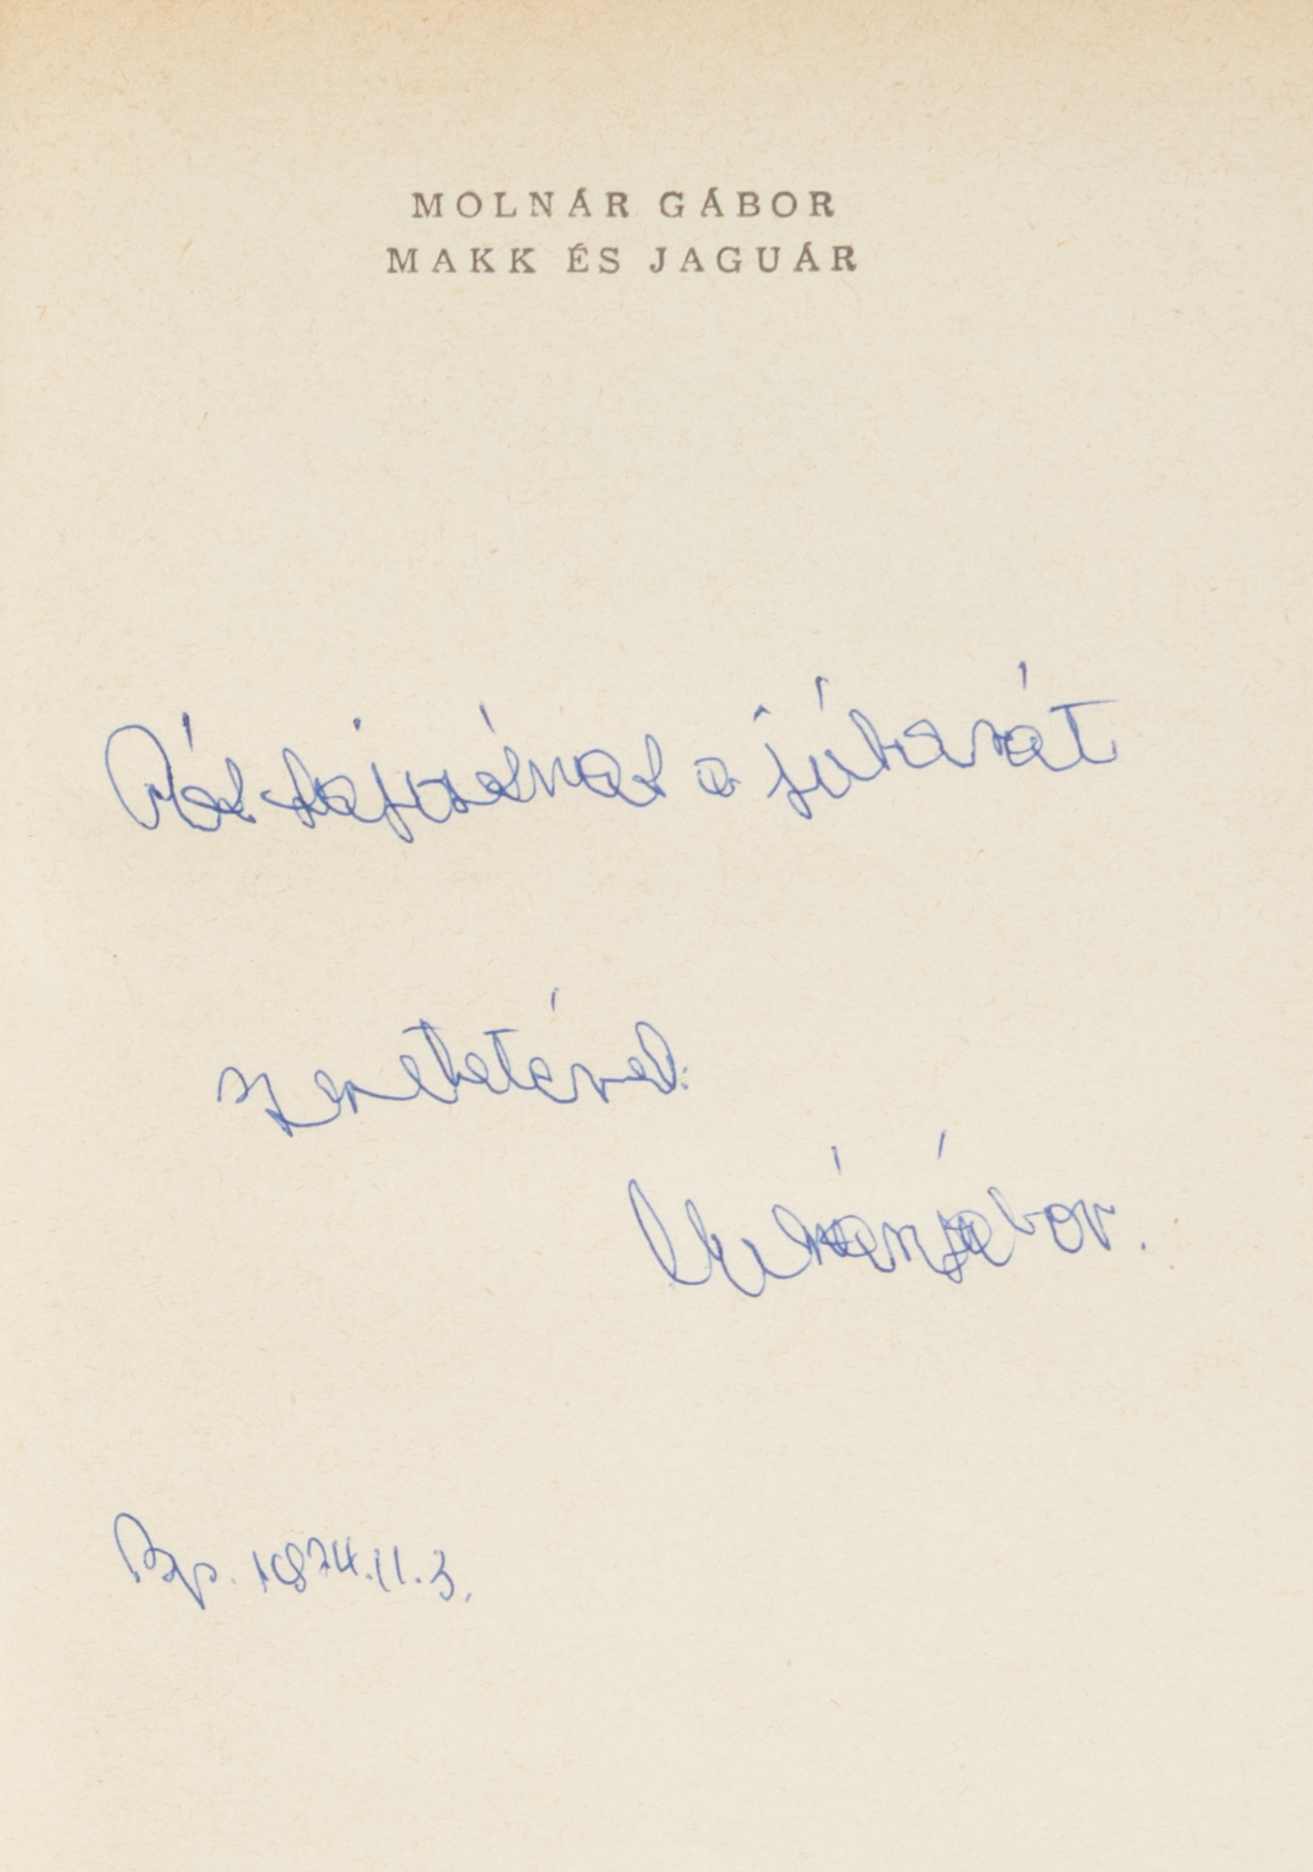 MOLNÁR GÁBOR
MAKK ÉS JAGUÁR
Pál Lajosénak a júbarát
szeretetével:
Molnár Gábor.
Bp. 1974.II.3.